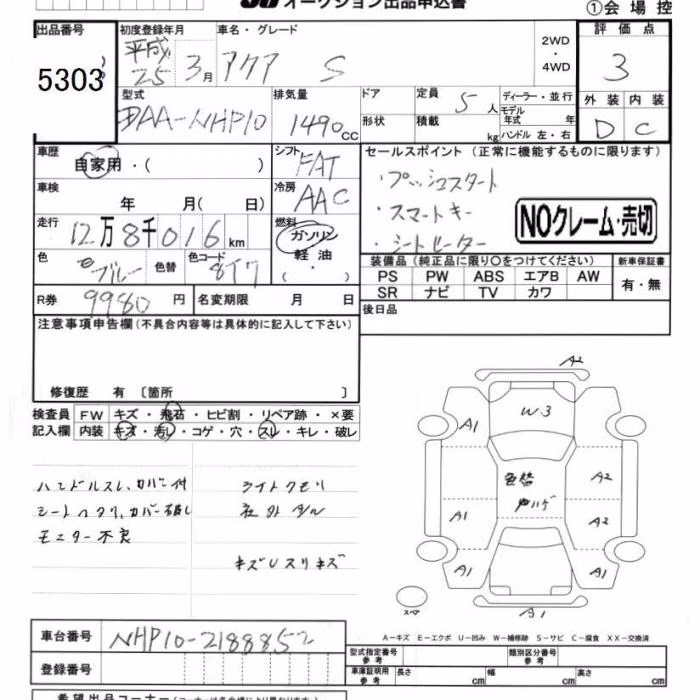 オークション出品申込書
①会場控
出品番号
5303
初度登録年月
平成25 3月
車名・グレード
アクア S
2WD
・
4WD
評価点
3
型式
DAA-NHP10
排気量
1490cc
ドア
形状
定員 5人
積載 kg
ディーラー・並行
モデル
年式 年
ハンドル 左・右
外装 内装
D C
車歴
自家用・( )
シフト
FAT
セールスポイント(正常に機能するものに限ります)
・プッシュスタート
・スマートキー
・シートヒーター
NOクレーム・売切
車検
年 月( 日)
冷房
AAC
走行
12万8千016km
燃料
ガソリン
軽油
( ・ )
色
ブルー
色替
色コード
8T7
装備品(純正品に限り○をつけてください)
新車保証書
PS PW ABS エアB AW
SR ナビ TV カワ
有・無
R券 9980円
名変期限 月 日
後日品
注意事項申告欄(不具合内容等は具体的に記入して下さい)
修復歴 有〔箇所 〕
検査員
記入欄
FW キズ・飛石・ヒビ割・リペア跡・×要
内装 キズ・汚レ・コゲ・穴・スレ・キレ・破レ
ハンドルスレ、カバー付
シートヘタリ、カバー破レ
モニター不良
ライトクモリ
キズUスリキズ
A2
W3
A1
色替
戸ハゲ
A2
A1
A2
A1
A1
A1
スペア
A-キズ E-エクボ U-凹み W-補修跡 S-サビ C-腐食 XX-交換済
車台番号
NHP10-2188852
登録番号
型式指定番号
参考
類別区分番号
参考
車庫証明用
参考
長さ cm 幅 cm 高さ cm
希望出品コーナー